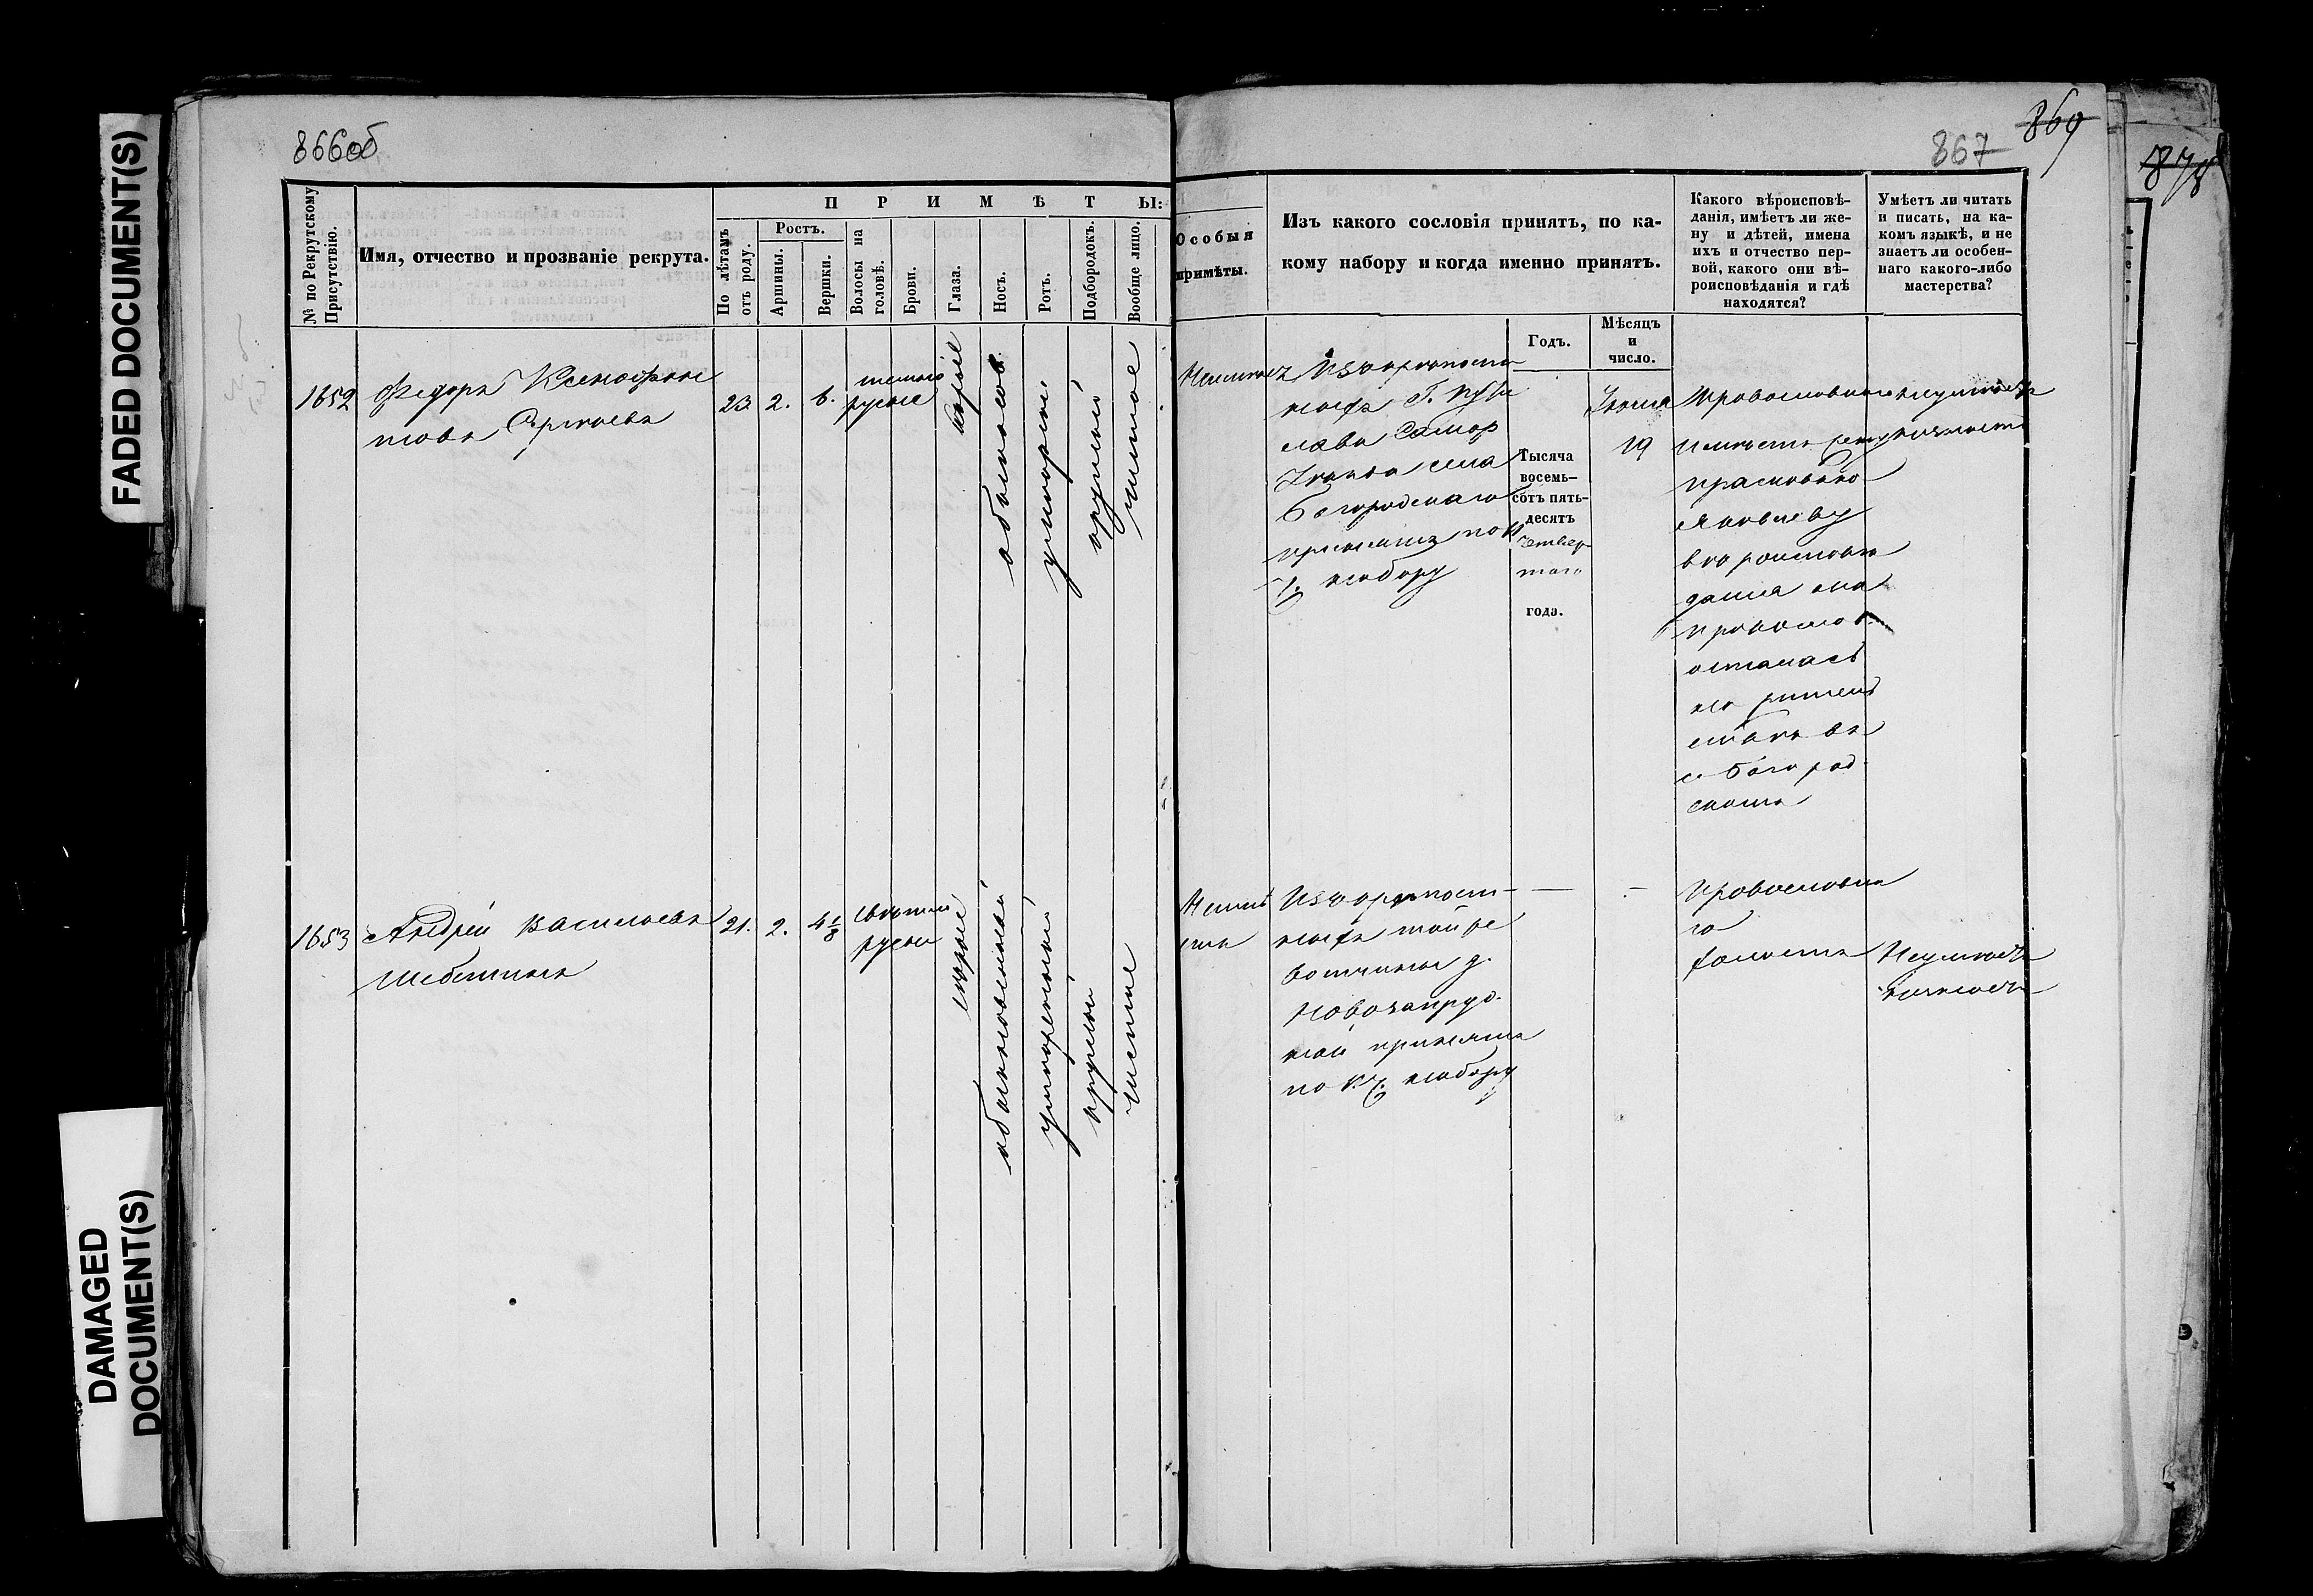 FADED DOCUMENT(S)
DAMAGED
DOCUMENT(S)
866об
№ по Рекрутскому
Присутствію.
Имя, отчество и прозваніе рекрута.
ПРИМѢТЫ:
По лѣтамъ
отъ роду.
Ростъ.
Аршины.
Вершки.
Волосы на
головѣ.
Брови.
Глаза.
Носъ.
Ротъ.
Подбородокъ.
Вообще лицо.
1652
Федоръ Ксенофон
товъ
23
2.
6.
темно
русые
карые
обыкнов.
умѣрен
круглый
чистое
1653
Андрей Васильевъ
Шебеткинъ
21.
2.
4 1/8
свѣтло
русые
сѣрые
обыкновенный
умѣренный
круглый
чистое
867
869
878
Особыя
примѣты.
Изъ какого сословія принятъ, по ка-
кому набору и когда именно принятъ.
Какого вѣроисповѣ-
данія, имѣетъ ли же-
ну и дѣтей, имена
ихъ и отчество пер-
вой, какого они вѣ-
роисповѣданія и гдѣ
находятся?
Умѣетъ ли читать
и писать, на ка-
комъ языкѣ, и не
знаетъ ли особен-
наго какого-либо
мастерства?
Годъ.
Мѣсяцъ
и
число.
Изъ крѣпост
ныхъ Г.
села
Богородскаго
принятъ по
набору
Тысяча
восемь-
сотъ пять-
десятъ
четвер-
таго
года.
19
Православнаго
имѣетъ жену
Прасковью
Яковлеву
вѣроисповѣ
данія она
православ.
осталась
на жител
ствѣ въ
с. Богород
скомъ
неумѣетъ
Неимѣ
етъ
Изъ крѣпост
ныхъ той же
вотчины д.
Новозапруд
ной принятъ
по набору
Православна
го
холостъ
Неумѣетъ